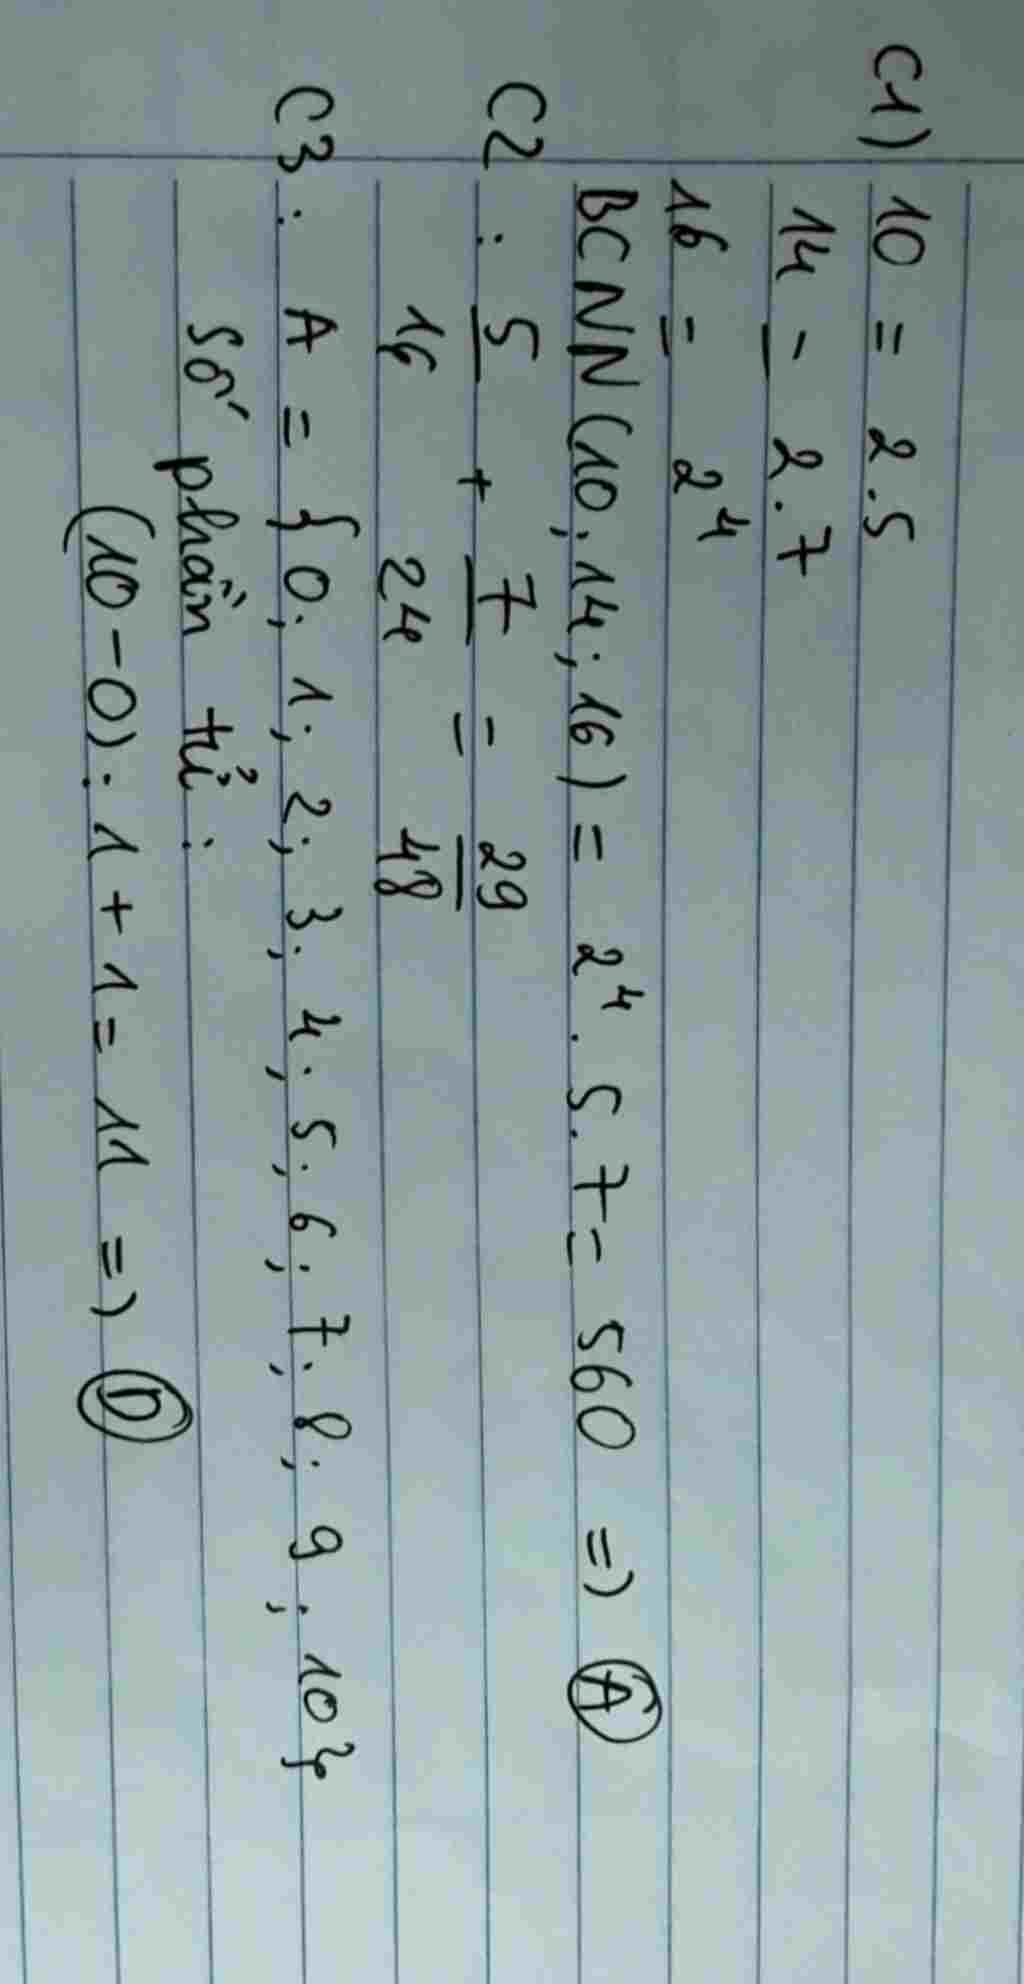 C1) 10 = 2.5
14 = 2.7
16 = 2⁴
BCNN(10;14;16) = 2⁴.5.7 = 560 => A
C2: 5/16 + 7/24 = 29/48
C3: A = {0; 1; 2; 3; 4; 5; 6; 7; 8; 9; 10}
Số phần tử:
(10-0):1+1 = 11 => D